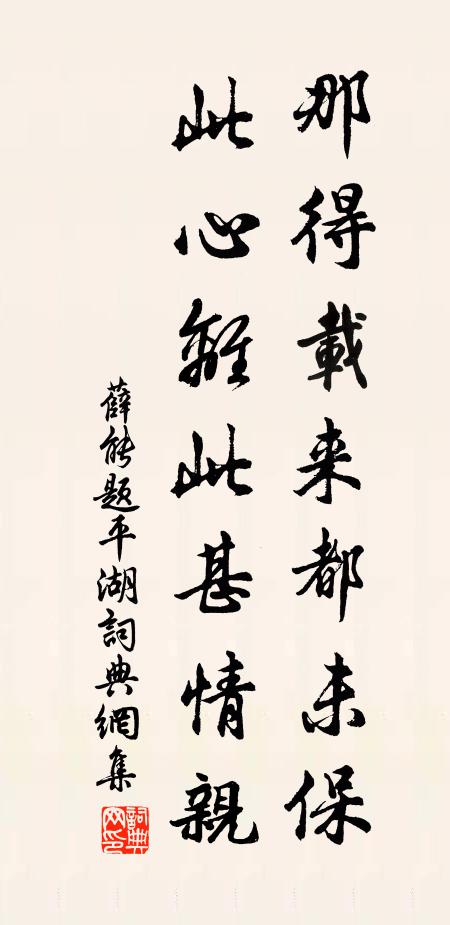 那得載来都未保
此心離此甚情親
薛能題平湖詞典網集
詞典网印